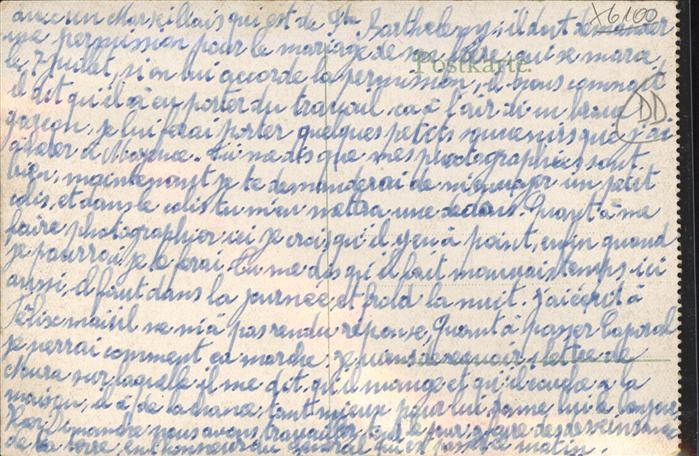 avec un Marseillais qui est de Ste Barthelemy, il doit demander
X6100
une permission pour le mariage de sa qui se marie
le 7 Juillet, si on lui accorde la permission, il nous
Postkarte.
il dit qu'il a eu porter du travail ca à l'air di un brave
DD
gascon, je lui ferai porter quelques petits souvenirs que j'ai
acheter à Mayence. Tu me dis que mes photographies sont
bien, maintenant je te demanderai de m'envoyer un petit
colis, et dans le colis tu m'en mettra une dedans. Quant à me
faire photographier ici je crois qu'il y en à point, enfin quand
je pourrai je le ferai. Tu me dis qu'il fait mauvais temps, ici
aussi, il faut dans la journée et froid la nuit. J'ai écrit à
Félix mais il ne m'à pas rendu réponse, Quant à passer Caporal
je verrai comment ca marche. Je viens de recevoir 1 lettre de
sur laquelle il me dit qu'il mange et qu'il couche a la
maison, il à de la chance, tant mieux pour lui, donne lui le bonjour
Hier Dimanche nous avons travailler tout le jour, a faire des
de la terre, en l'honneur du Général qui est passé le matin.